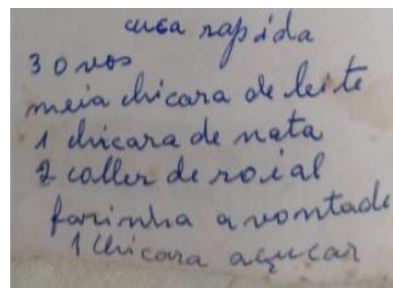 cuca rapida
3 ovos
meia chicara de leite
1 chicara de nata
2 colher de roial
farinha a vontade
1 chicara açucar